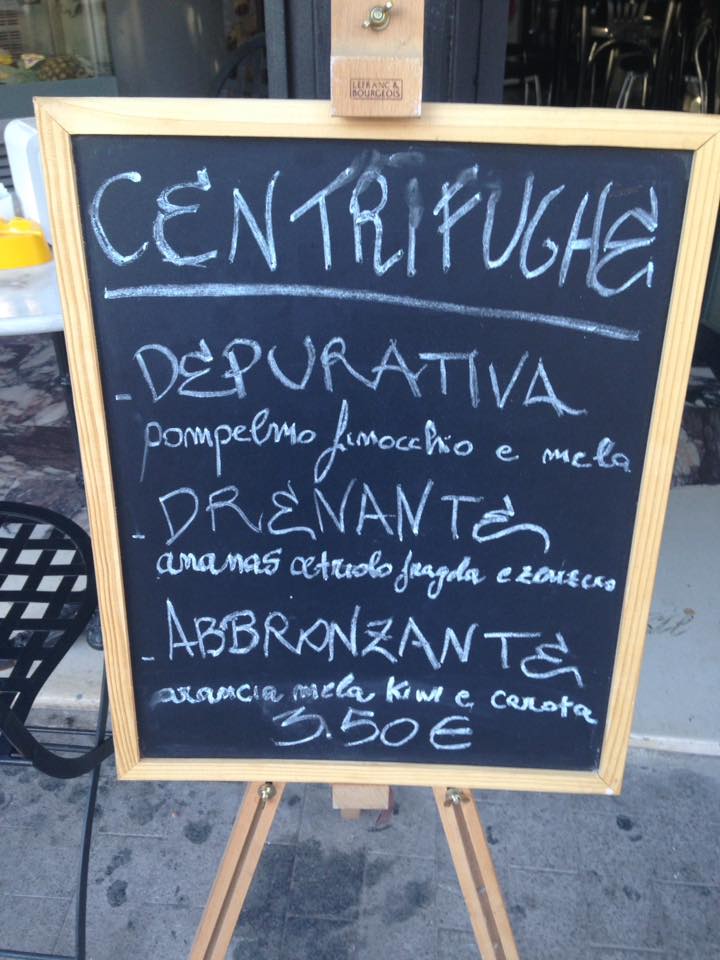 LEFRANC &
BOURGEOIS
CENTRIFUGHE
- DEPURATIVA
pompelmo finocchio e mela
- DRENANTE
ananas cetriolo fragola e zenzero
- ABBRONZANTE
arancia mela kiwi e carota
3.50 €